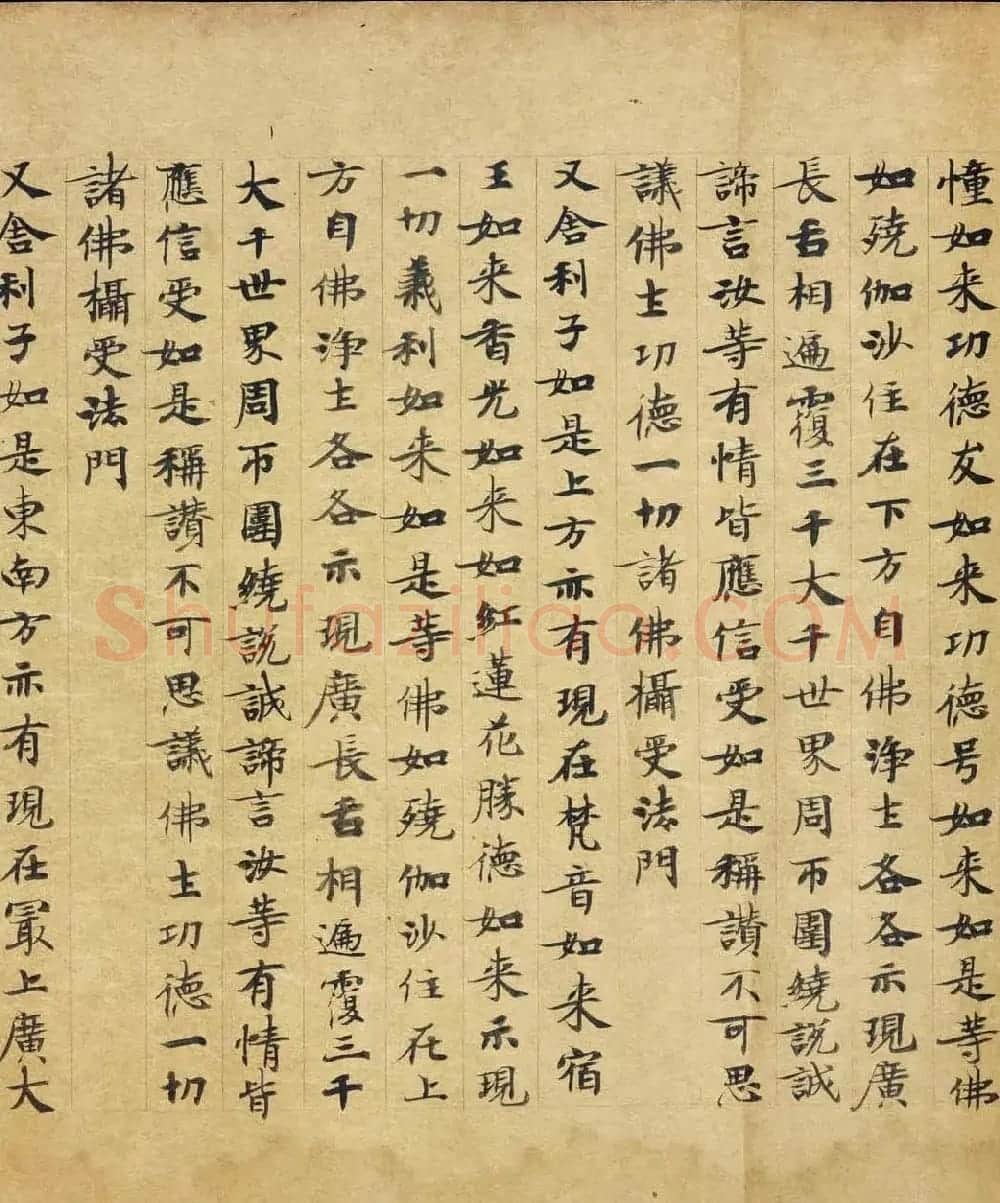 憧如来功德友如来功德号如来如是等佛
如殑伽沙住在下方自佛净土各各示現廣
長舌相遍覆三千大千世界周帀圍繞説誠
諦言汝等有情皆應信受如是稱讃不可思
議佛土功德一切諸佛攝受法門
又舍利子如是上方亦有現在梵音如来宿
王如来香光如来如紅蓮花勝德如来示現
一切義利如来如是等佛如殑伽沙住在上
方自佛净土各各示現廣長舌相遍覆三千
大千世界周帀圍繞説誠諦言汝等有情皆
應信受如是稱讃不可思議佛土功德一切
諸佛攝受法門
又舍利子如是東南方亦有現在冣上廣大
Shufaziliao.COM